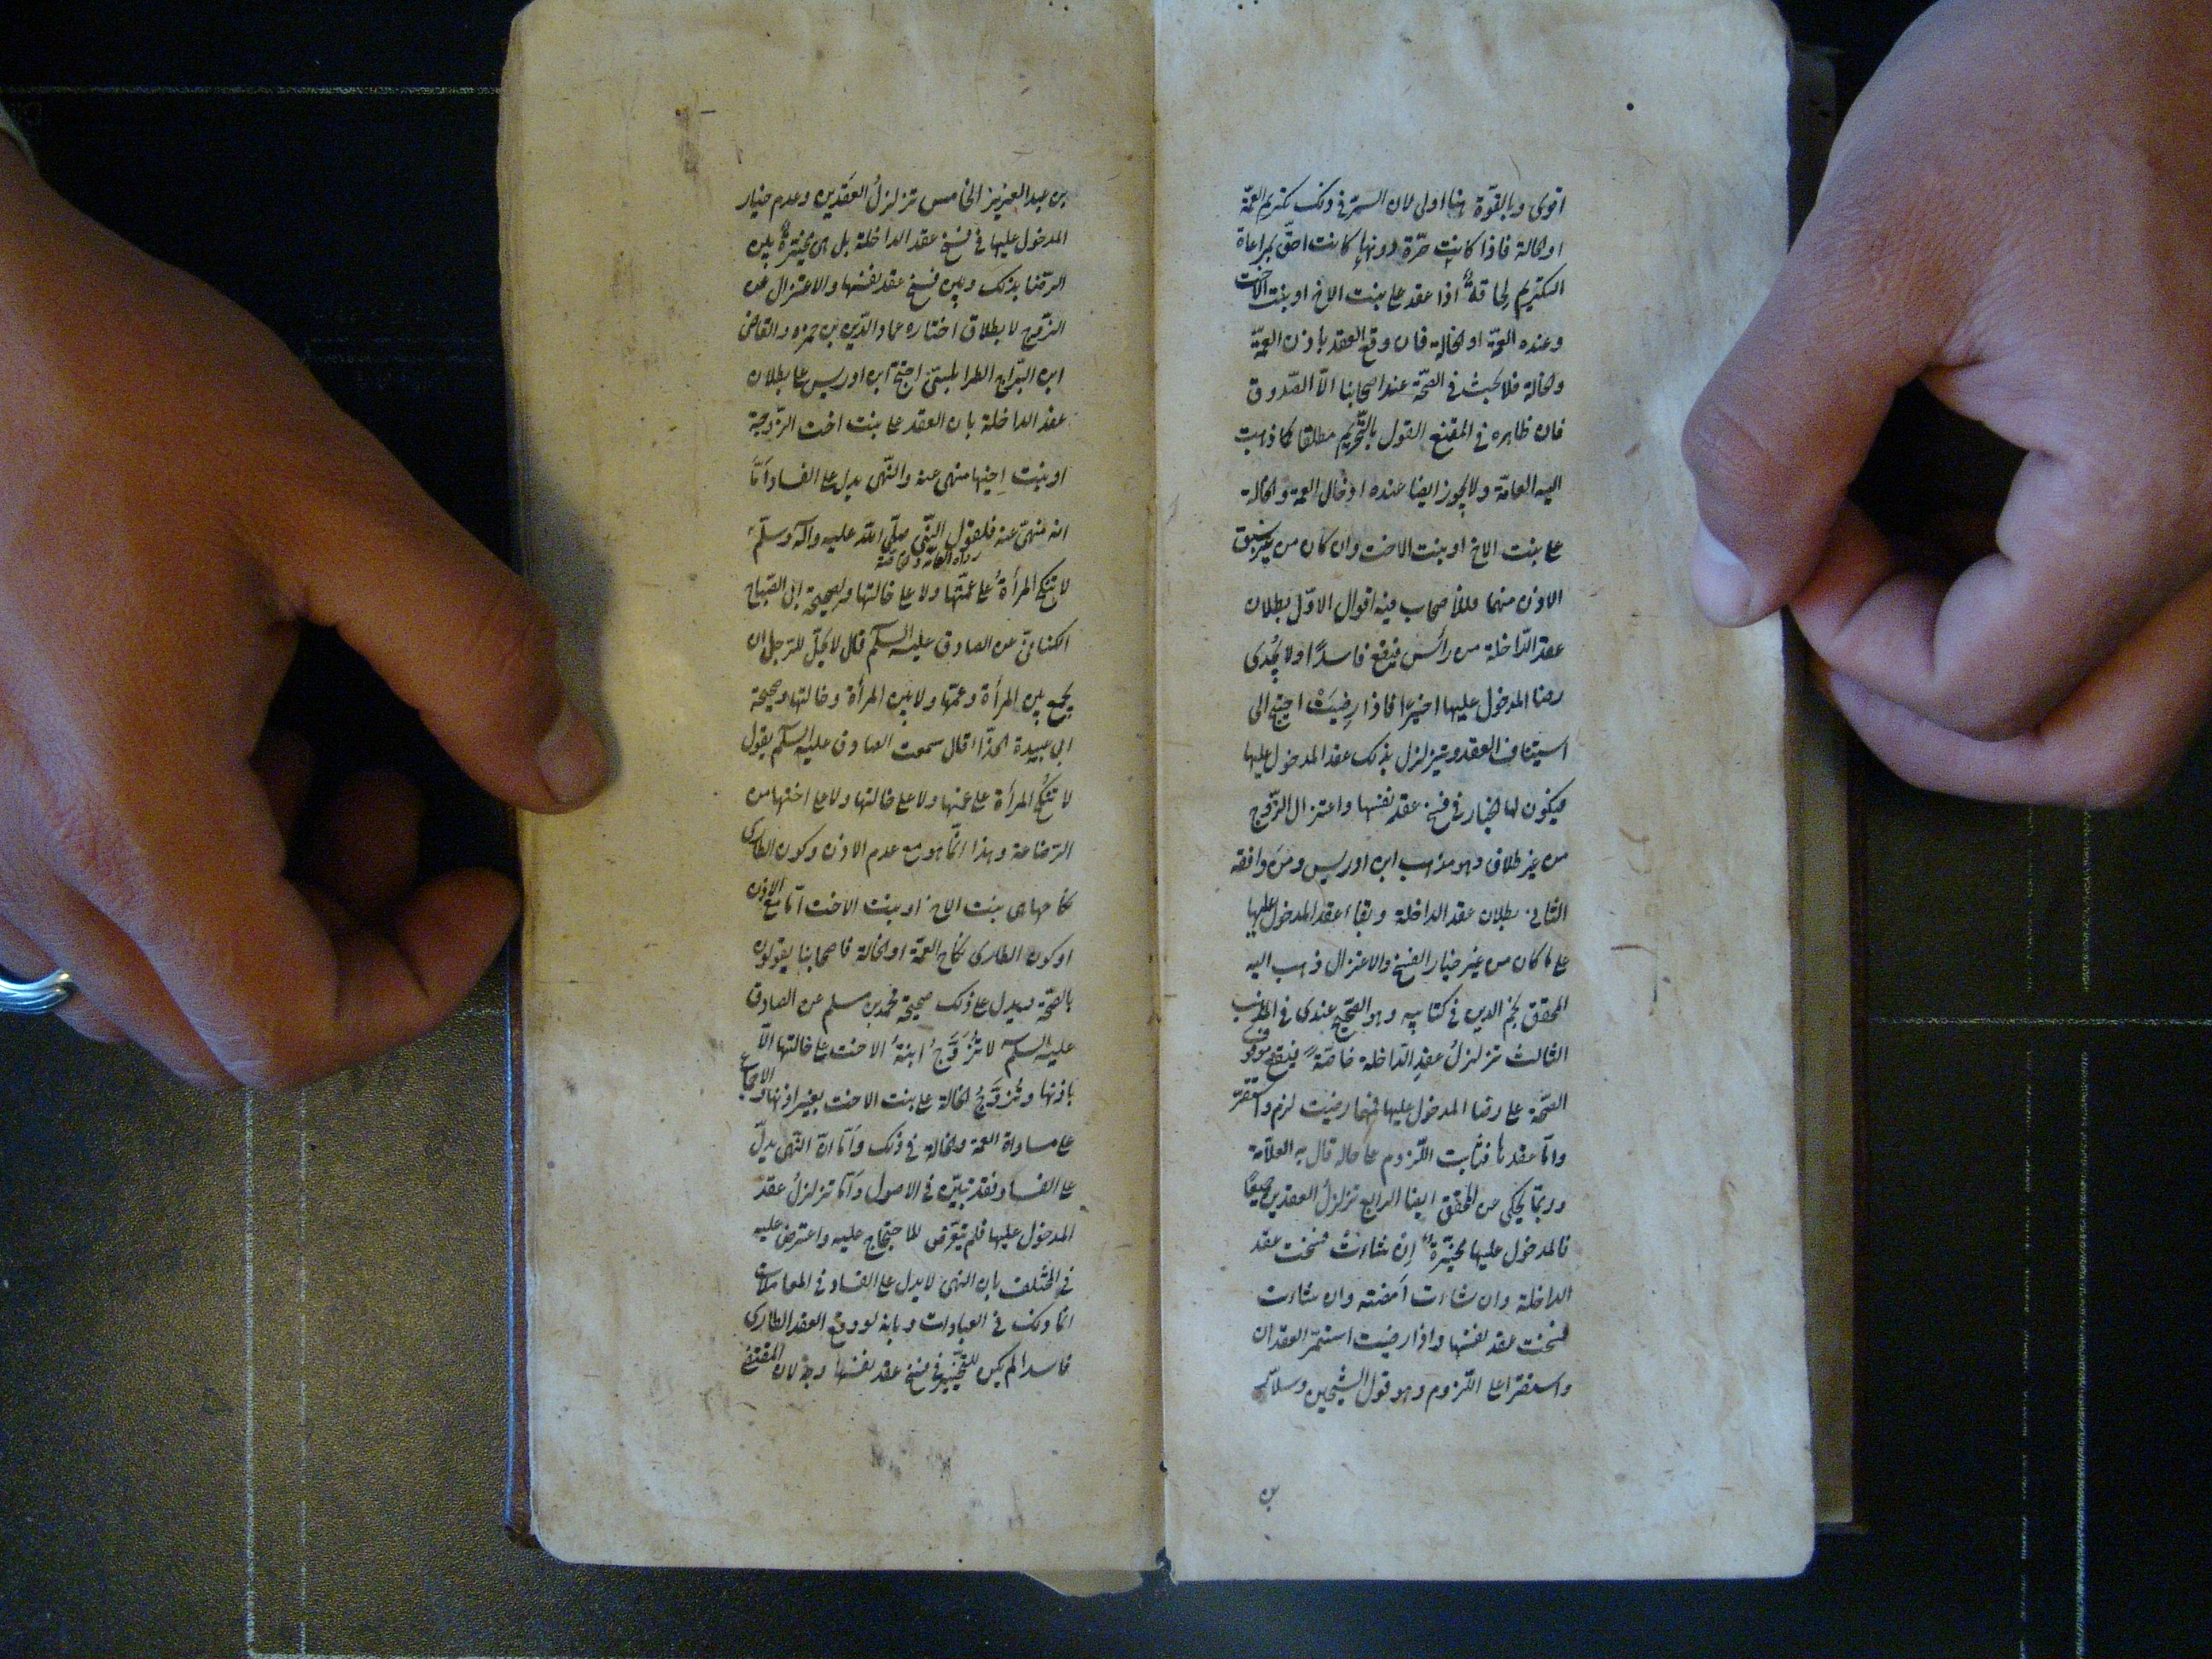 اقوى وبالقوّة هنا اولى لان السرّ في ذلك تكريم العمّة
او الخالة فاذا كانت حرّة دونها كانت احقّ بمراعاة
التكريم لحاقة اذا عقد على بنت الاخ او بنت الاخت
وعنده العمّة او الخالة فان وقع العقد باذن العمّة
والخالة فلا بحث في الصحّة عند اصحابنا الّا الصّدوق
فان ظاهره في المقنع القول بالتّحريم مطلقا كما ذهبت
اليه العامّة ولا يجوز ايضا عنده ادخال العمة والخالة
على بنت الاخ او بنت الاخت وان كان من غير سبق
الاذن منهما فللأصحاب فيه اقوال الاوّل بطلان
عقد الدّاخلة من رأس فيقع فاسدًا ولا يُجدى
رضا المدخول عليها اخيرا فاذا رضيَتْ احتيج الى
استيناف العقد ويتزلزل بذلك عقد المدخول عليها
فيكون لها الخيار في فسخ عقد نفسها واعتزال الزّوج
من غير طلاق وهو مذهب ابن ادريس ومن وافقه
الثاني بطلان عقد الداخلة وبقاء عقد المدخول عليها
على ما كان من غير خيار الفسخ والاعتزال ذهب اليه
المحقق نجم الدين في كتابيه وهو الصّحيح عندى في المذهب
الثالث تزلزلُ عقدِ الدّاخلة خاصّةً فيقع موقوف
الصّحّة على رضا المدخول عليها فمهما رضيت لزم واستقرّ
وامّا عقدها فثابت اللّزوم على حاله قال به العلّامة
وربّما يحكى عن المحقّق ايضا الرابع تزلزلُ العقدين جميعًا
فالمدخول عليها مخيّرةٌ إن شاءت فسخت عقد
الداخلة وان شاءت أمضته وان شاءت
فسخت عقد نفسها واذا رضيت استمرّ العقدان
واستقرا على اللّزوم وهو قول الشيخين وسلّار
بن
بن عبد العزيز الخامس تزلزلُ العقدين وعدم خيار
المدخول عليها في فسخ عقد الداخلة بل هى مخيّرةٌ بين
الرضا بذلك وبين فسخ عقد نفسها والاعتزال عن
الزّوج لا بطلاق اختاره عماد الدّين بن حمزه والقاضى
ابن البرّاج الطرابلسىّ احتجّ ابن ادريس على بطلان
عقد الداخلة بان العقد على بنت اخت الزّوجة
او بنت اخيها منهى عنه والنّهى يدل على الفساد أمّا
انه منهىّ عنه فلقول النّبى صلّى اللّه عليه وآله وسلّم
رواه العامّة والخاصّة
لا تنكح المرأةُ على عمّتها ولا على خالتها ولصحيحة ابى الصّباح
الكنانىّ عن الصادق عليه السلّم قال لا يحلّ للرّجل ان
يجمع بين المرأة وعمّتها ولا بين المرأة وخالتها وصحيحة
ابى عبيدة الحذّاء قال سمعت الصادق عليه السلّم يقول
لا تنكح المرأة على عمتها ولا على خالتها ولا على اختها من
الرضاعة وهذا انّما هو مع عدم الاذن وكون الطارى
نكاحهاهى بنت الاخ او بنت الاخت امّا مع الاذن
او كون الطارى نكاح العمّة او الخالة فاصحابنا يقولون
بالصّحّة ويدل على ذلك صحيحة محمّد بن مسلم عن الصادق
عليه السلّم لا تُزَوَّجُ ابنةُ الاخت على خالتها الّا
باذنها وتُزَوَّجُ الخالة على بنت الاخت بغير اذنها والاجماع
على مساواة العمة والخالة في ذلك وأمّا انّ النّهى يدلّ
على الفساد فقد تبيّن في الاصول وأمّا تزلزلُ عقد
المدخول عليها فلم يتعرّض للاحتجاج عليه واعترض عليه
في المختلف بان النهى لا يدل على الفساد في المعاملات
انّما ذلك في العبادات وبانه لو وقع العقد الطارى
فاسدا لم يكن للتّخيير في فسخ عقد نفسها وجه لان المقتضى